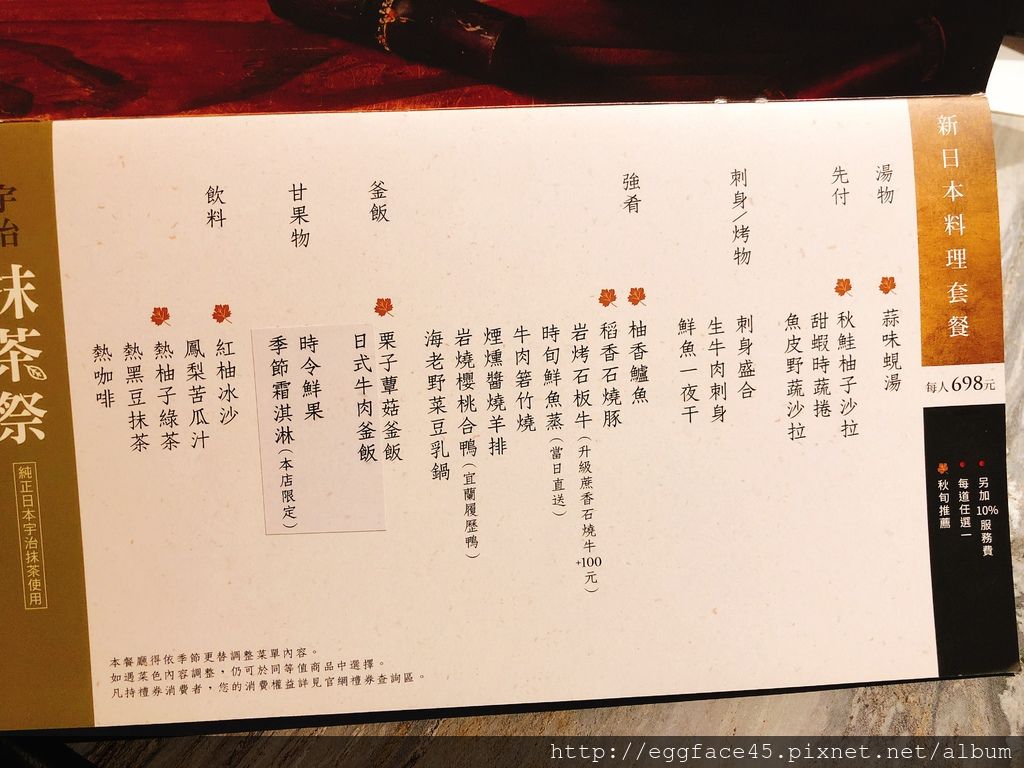 新日本料理套餐
每人698元
另加10%服務費
每道任選一
秋旬推薦
湯物
蒜味蜆湯
先付
秋鮭柚子沙拉
甜蝦時蔬捲
魚皮野蔬沙拉
刺身/烤物
刺身盛合
生牛肉刺身
鮮魚一夜干
強肴
柚香鱸魚
稻香石燒豚
岩烤石板牛(升級蔗香石燒牛+100元)
時旬鮮魚蒸(當日直送)
牛肉箬竹燒
煙燻醬燒羊排
岩燒櫻桃合鴨(宜蘭履歷鴨)
海老野菜豆乳鍋
釜飯
栗子蕈菇釜飯
日式牛肉釜飯
甘果物
時令鮮果
季節霜淇淋(本店限定)
飲料
紅柚冰沙
鳳梨苦瓜汁
熱柚子綠茶
熱黑豆抹茶
熱咖啡
本餐廳得依季節更替調整菜單內容。
如遇菜色內容調整，仍可於同等值商品中選擇。
凡持禮券消費者，您的消費權益詳見官網禮券查詢區。
宇治
抹茶祭
純正日本宇治抹茶使用
http://eggface45.pixnet.net/album